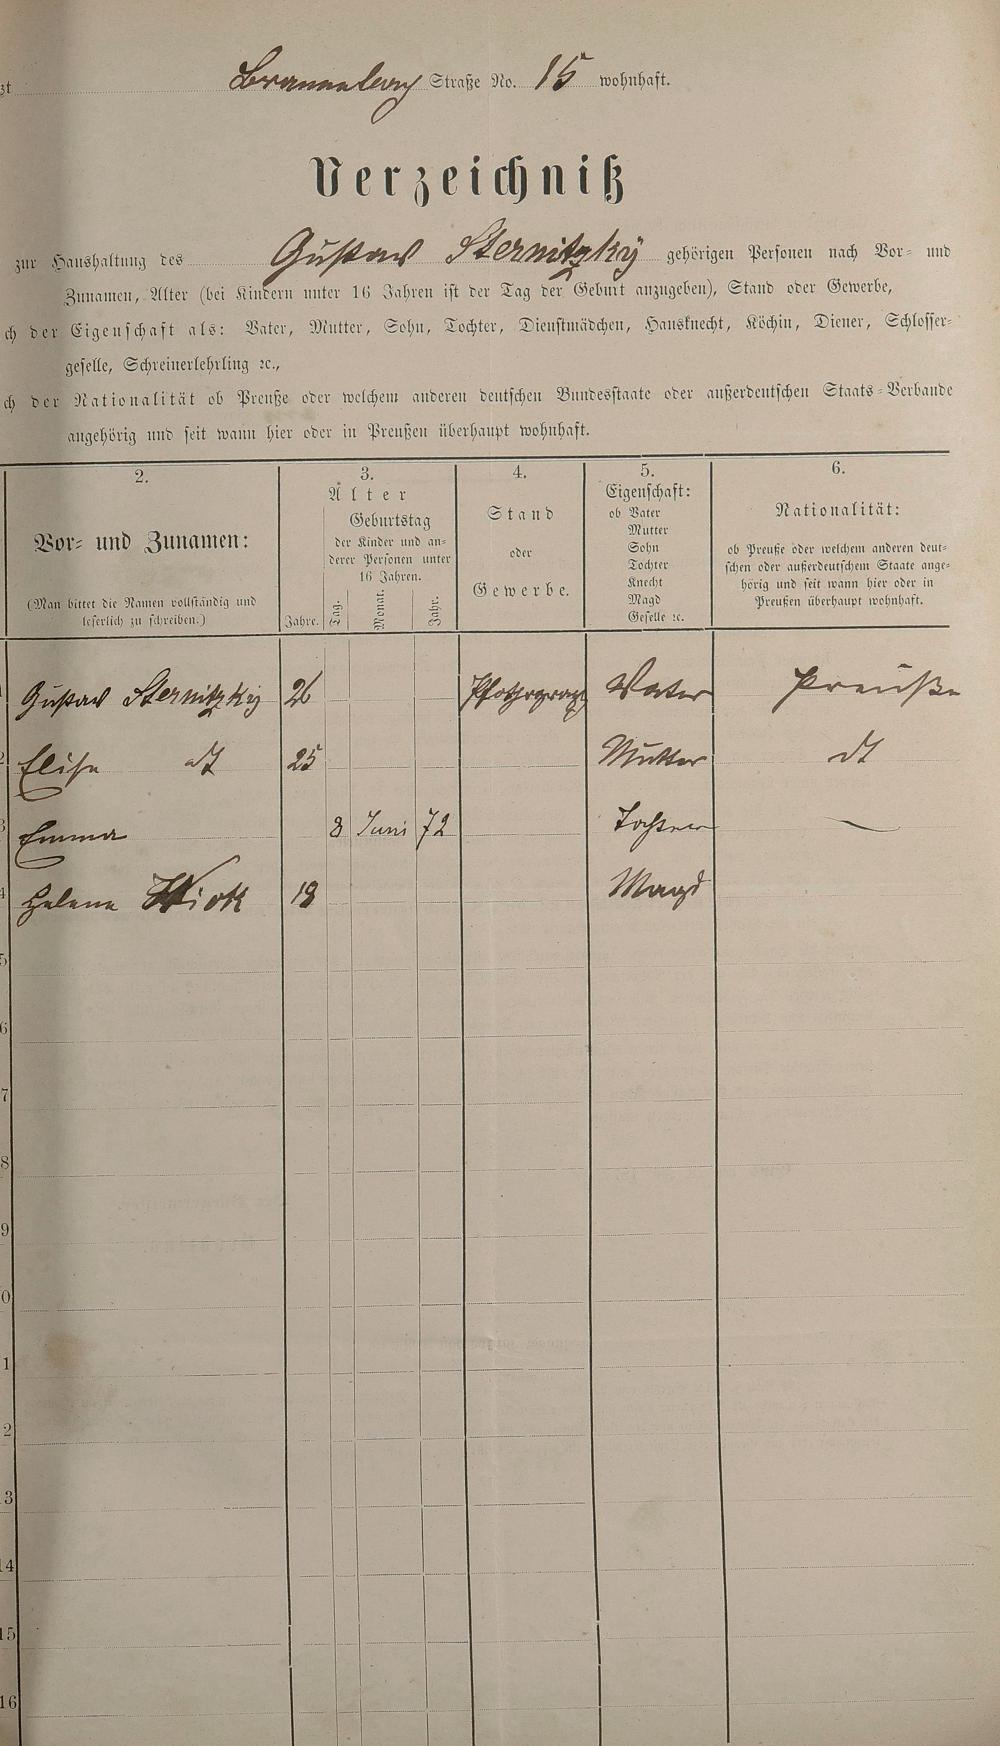 zt Brannenburg Straße No. 15 wohnhaft.
Verzeichniß
zur Haushaltung des Gustav Sternitzky gehörigen Personen nach Vor- und
Zunamen, Alter (bei Kindern unter 16 Jahren ist der Tag der Geburt anzugeben), Stand oder Gewerbe,
ch der Eigenschaft als: Vater, Mutter, Sohn, Tochter, Dienstmädchen, Hausknecht, Köchin, Diener, Schlosser-
geselle, Schreinerlehrling ꝛc.,
ch der Nationalität ob Preuße oder welchem anderen deutschen Bundesstaate oder außerdeutschen Staats-Verbande
angehörig und seit wann hier oder in Preußen überhaupt wohnhaft.
2.
Vor- und Zunamen:
(Man bittet die Namen vollständig und
leserlich zu schreiben.)
3.
Alter
Geburtstag
der Kinder und an-
derer Personen unter
16 Jahren.
Jahre. Tag. Monat. Jahr.
4.
Stand
oder
Gewerbe.
5.
Eigenschaft:
ob Vater
Mutter
Sohn
Tochter
Knecht
Magd
Geselle ꝛc.
6.
Nationalität:
ob Preuße oder welchem anderen deut-
schen oder außerdeutschem Staate ange-
hörig und seit wann hier oder in
Preußen überhaupt wohnhaft.
1 Gustav Sternitzky 26 Photograph Vater Preuße
2 Elise dt 25 Mutter dt
3 Emma 8 Juni 72 Tochter
4 Helene 18 Magd
5
6
7
8
9
0
1
2
13
14
15
16